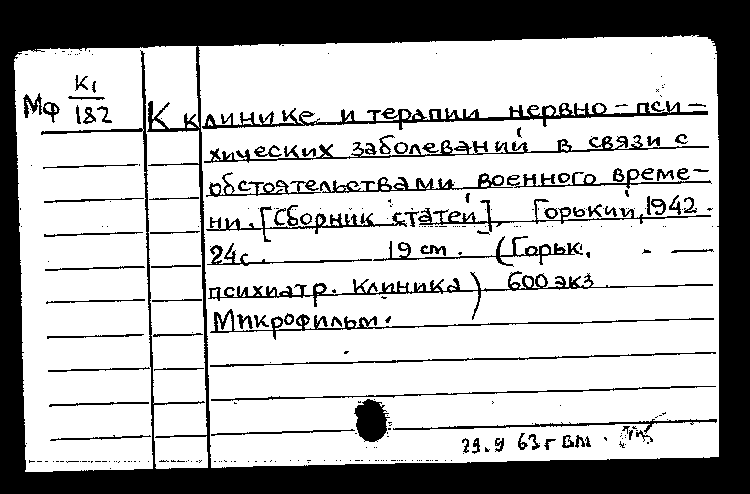 Мф К1/182
К клинике и терапии нервно-пси-
хических заболеваний в связи с
обстоятельствами военного време-
ни. [Сборник статей], Горький, 1942.
24с. 19 см. (Горьк.
психиатр. клиника) 600 экз.
Микрофильм.
29.9 63г ВМ.